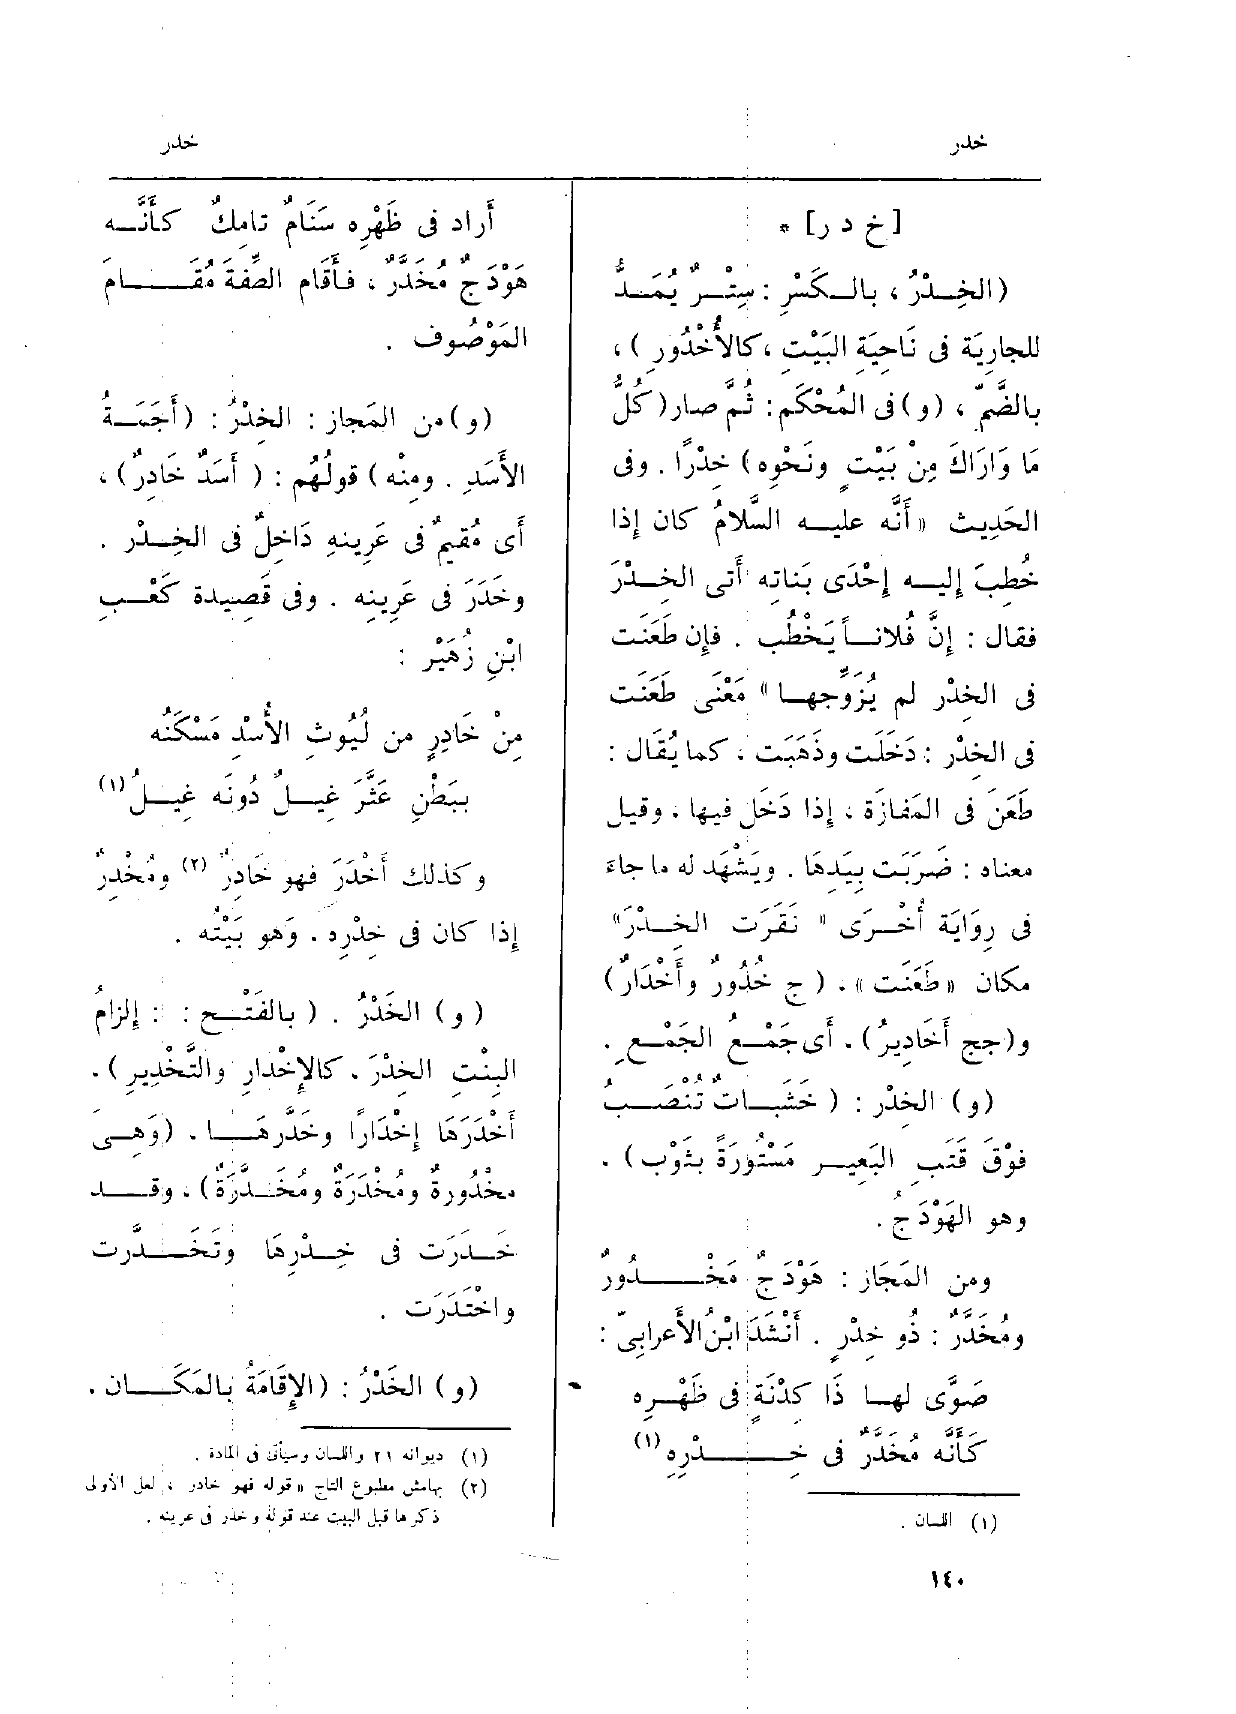 خدر
خدر
[خ د ر] *
(الخِدْرُ، بالكَسْرِ: سِتْرٌ يُمَدُّ
للجارِيَة فى نَاحِيَةِ البَيْتِ، كالأُخْدُورِ)،
بالضَّمِّ، (و) فى المُحْكَم: ثُمَّ صار (كُلُّ
مَا وَارَاكَ مِن بَيْتٍ ونَحْوِه) خِدْرًا. وفى
الحَدِيث «أَنَّه عليه السَّلامُ كان إذا
خُطِبَ إليه إحْدَى بَنَاتِه أَتى الخِدْرَ
فقال: إنَّ فُلاناً يَخْطُب. فإن طَعَنَت
فى الخِدْرِ لم يُزَوِّجْها» مَعْنَى طَعَنَت
فى الخِدْرِ: دَخَلَت وذَهَبَت، كما يُقَال:
طَعَنَ فى المَفَازَة، إذا دَخَلَ فيها، وقيل
معناه: ضَرَبَت بِيَدِهَا. ويَشْهَد له ما جاءَ
فى رِوَايَة أُخْرَى «نَقَرَت الخِدْرَ»
مكان «طَعَنَت». (ج خُدُورٌ وأَخْدَارٌ)
و(جج أَخَادِيرُ). أى جَمْعُ الجَمْعِ.
(و) الخِدْر: (خَشَبَاتٌ تُنْصَبُ
فَوْقَ قَتَبِ البَعِيرِ مَسْتُورَةً بثَوْبٍ).
وهو الهَوْدَجُ.
ومن المَجَازِ: هَوْدَجٌ مَخْدُورٌ
ومُخَدَّرٌ: ذُو خِدْرٍ. أَنْشَدَ ابْنُ الأَعرابِىّ:
صَوَّى لها ذَا كِدْنَةٍ فى ظَهْرِه
كَأَنَّه مُخَدَّرٌ فى خِدْرِهِ (١)
(١) اللسان.
أَراد فى ظَهْرِه سَنَامٌ تامِكٌ كأَنَّه
هَوْدَجٌ مُخَدَّرٌ، فأَقَام الصِّفةَ مُقَامَ
المَوْصُوف.
(و) من المَجاز: الخِدْرُ: (أَجَمَةُ
الأَسَدِ. ومِنْه) قولُهُم: (أَسَدٌ خَادِرٌ)،
أى مُقِيمٌ فى عَرِينِهِ دَاخِلٌ فى الخِدْرِ.
وخَدَرَ فى عَرِينِه. وفى قَصِيدة كَعْبِ
ابْنِ زُهَيْر:
مِنْ خَادِرٍ من لُيُوثِ الأُسْدِ مَسْكَنُه
بِبَطْنِ عَثَّرَ غِيلٌ دُونَه غِيلُ (١)
وكذلك أَخْدَرَ فهو خَادِرٌ (٢) ومُخْدِرٌ
إذا كان فى خِدْرِه. وَهو بَيْتُه.
(و) الخَدْرُ. (بالفَتْحِ: إلزامُ
البِنْتِ الخِدْرَ. كالإِخْدارِ والتَّخْدِيرِ).
أَخْدَرَهَا إخْدَارًا وخَدَّرهَا. (وَهِىَ
مخْدُورة ومُخْدَرَةٌ ومُخَدَّرَةٌ)، وقد
خَدَرَت فى خِدْرِهَا وتَخَدَّرت
واخْتَدَرَت.
(و) الخَدْرُ: (الإِقَامَةُ بالمَكَانِ.
(١) ديوانه ٢١ واللسان وسيأتى فى المادة.
(٢) بهامش مطبوع التاج «قوله فهو خادر، لعل الأولى
ذكرها قبل البيت عند قوله وخدر فى عرينه.
١٤٠